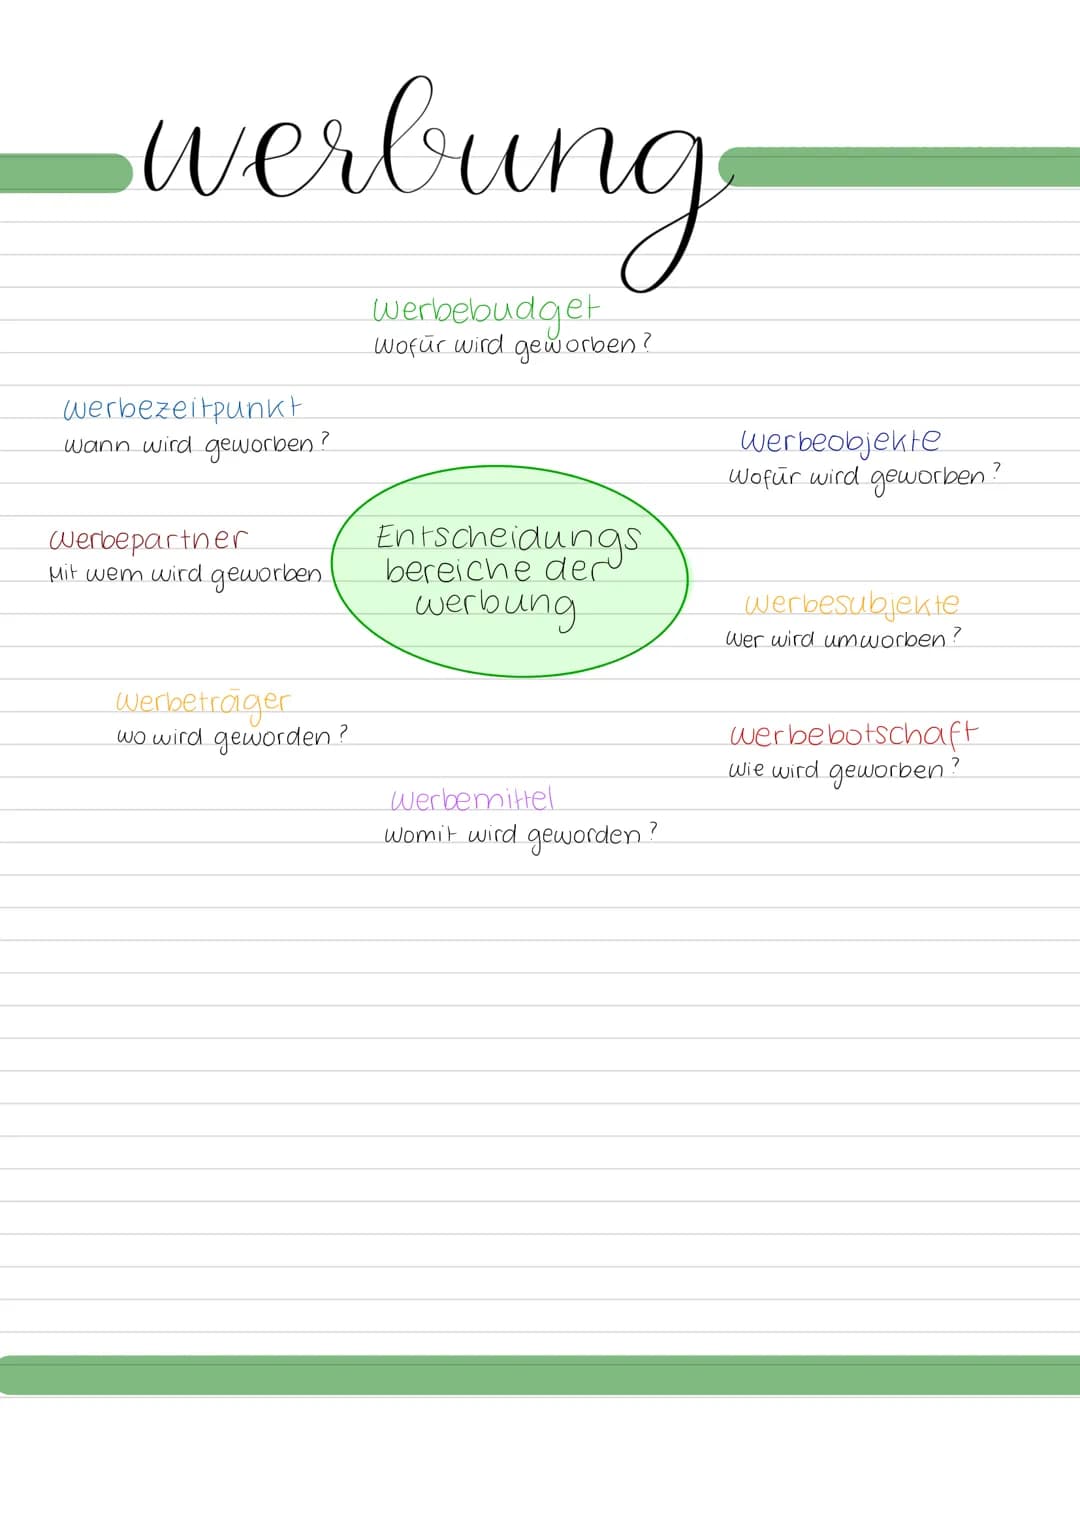 werbung
Werbebudget
Wofür wird geworben?
Werbezeitpunkt
wann wird geworben?
Werbeobjekte
Wofür wird geworben?
Werbepartner
Mit wem wird geworben
Entscheidungs
bereiche der
werbung
Werbesubjekte
Wer wird umworben?
Werbeträger
wo wird geworden?
Werbebotschaft
Wie wird geworben?
Werbemittel
Womit wird geworden?